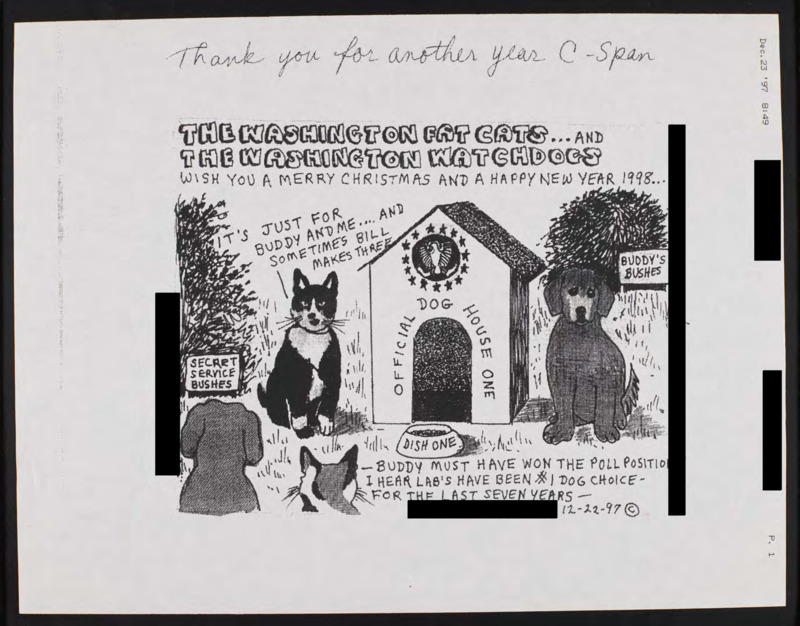 Thank you for another year C-Span
Dec. 23 '97 8:49
THE WASHINGTON FAT CATS...AND
THE WASHINGTON WATCHDOGS
WISH YOU A MERRY CHRISTMAS AND A HAPPY NEW YEAR 1998...
IT'S JUST FOR
BUDDY AND ME.... AND
SOMETIMES BILL
MAKES THREE
BUDDY'S
BUSHES
OFFICIAL DOG HOUSE ONE
SECRET
SERVICE
BUSHES
DISH ONE
—BUDDY MUST HAVE WON THE POLL POSITION
I HEAR LAB'S HAVE BEEN #1 DOG CHOICE-
-FOR THE LAST SEVEN YEARS—
12-22-97 ©
P. 1